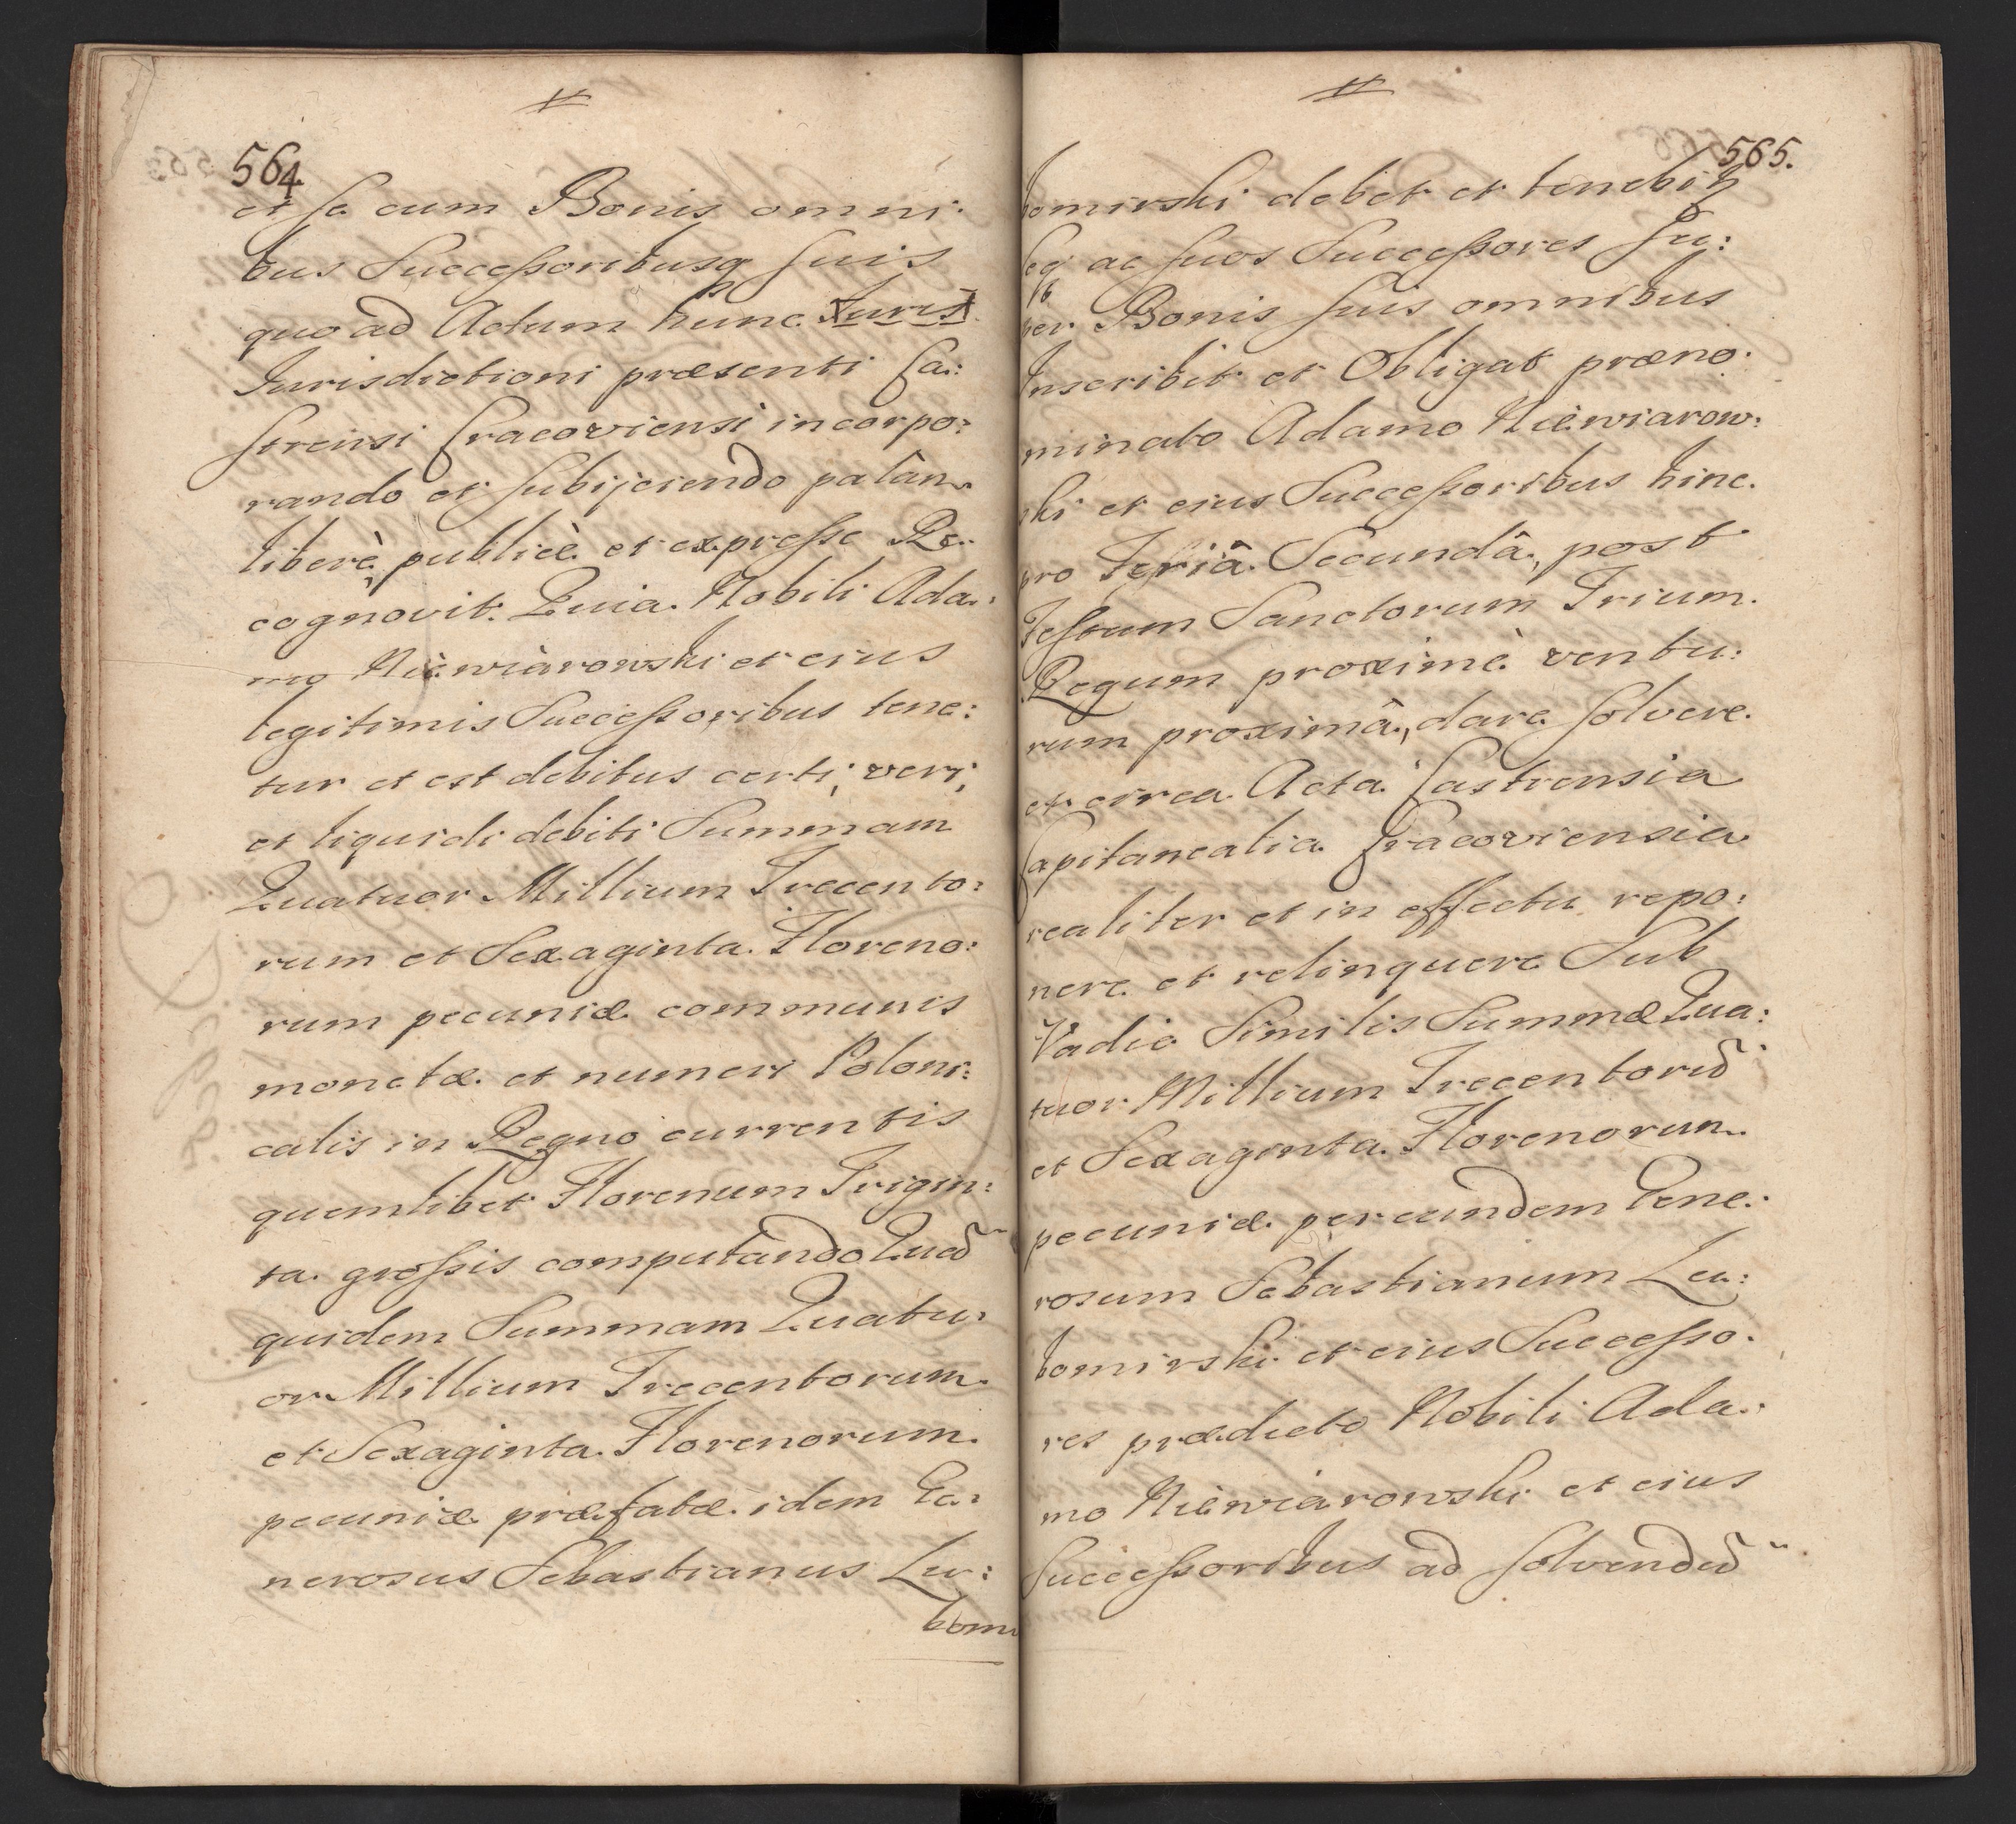 564
et se cum Bonis omni:
bus Successoribusq suis
quo ad Actum hunc Juris
Jurisdictioni præsenti Ca:
strensi Cracoviensi incorpo:
rando et subijciendo palàm
liberè publicè et expresse Re:
cognovit. Quia Nobili Ada:
mo Niewiarowski et eius
legitimis Successoribus tene:
tur et est debitus certi, veri,
et liquidi debiti Summam
Quatuor Millium Trecento:
rum et Sexaginta Floreno:
rum pecuniæ communis
monetæ et numeri Poloni:
calis in Regno currentis
quemlibet Florenum Trigin:
ta grossis computando Quã
quidem Summam Quatu:
or Millium Trecentorum
et Sexaginta Florenorum
pecuniæ præfatæ idem Ge:
nerosus Sebastianus Lu:
bomi
565.
bomirski debet et tenebit
seq ac suos Successores Su:
per Bonis suis omnibus
Inscribit et Obligat præno:
minato Adamo Niewiarow:
ski et eius Successoribus hinc
pro Feriâ Secundâ, post
Festum Sanctorum Trium
Regum proximè ventu:
rum proximâ, dare solvere
et circa Acta Castrensia
Capitanealia Cracoviensia
realiter et in effectu repo:
nere et relinquere Sub
Vadio Similis Summæ Qua:
tuor Millium Trecentorũ
et Sexaginta Florenorum
pecuniæ per eundem Gene:
rosum Sebastianum Lu:
bomirski et eius Successo:
res prædicto Nobili Ada:
mo Niewiarowski et eius
Successoribus ad solvendũ